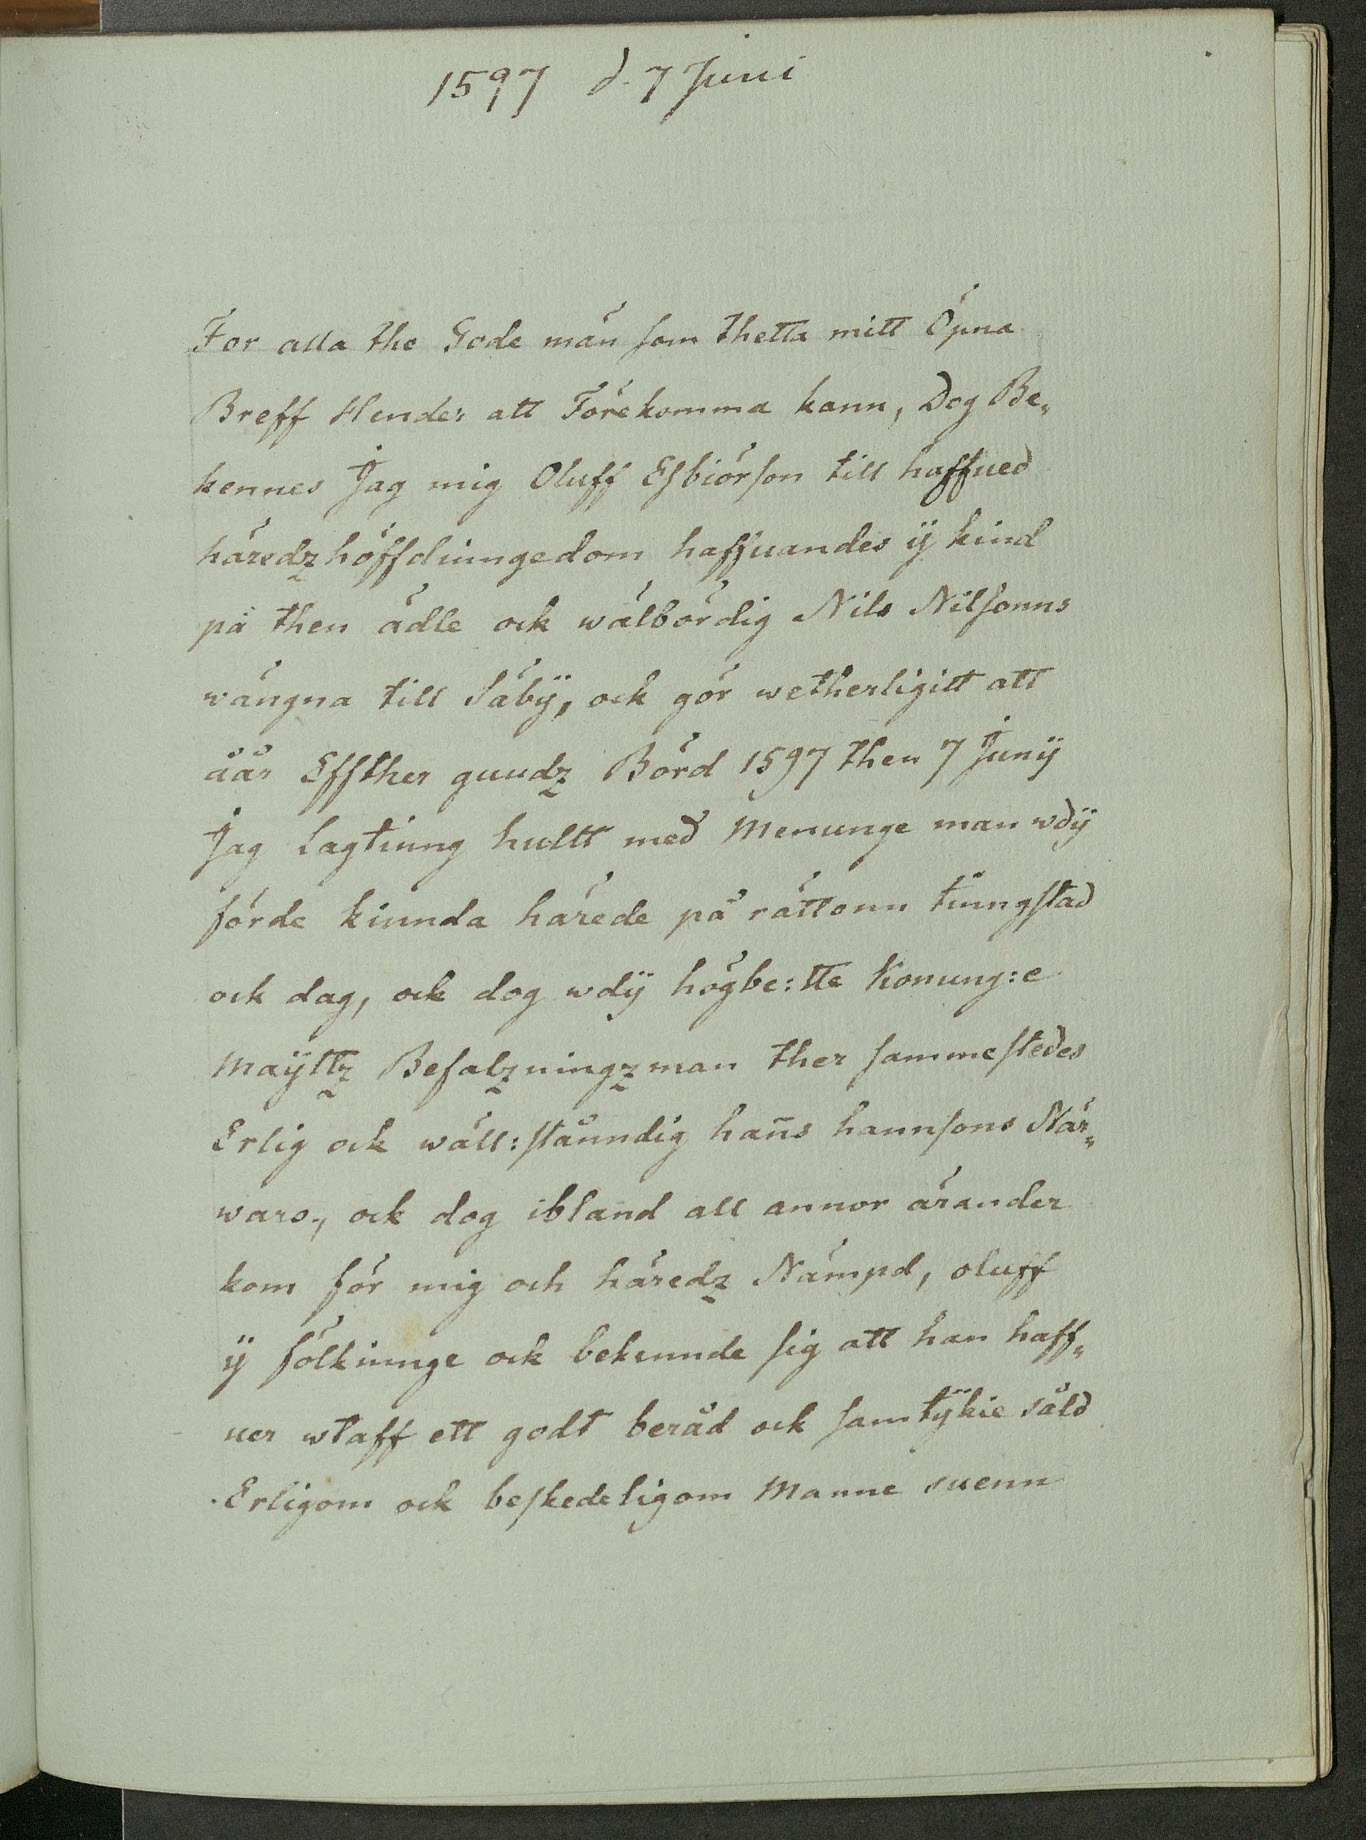 1597 d. 7 Juni
For alla the Gode män som thetta mitt Öpna
Breff Hender att Förekomma kann, Dog Be„
kennes Jag mig Oluff Esbiörson till haffued
häredz höffdinngedom haffuandes ÿ kind
på then ädle ock wälbördig Nils Nilsonns
wängna till Säbÿ, ock gör wetherligitt att
åår Effther guudz Börd 1597 then 7 Junÿ
Jag Lagtinng hultt med Menunge man wdÿ
förde kinnda härede på rättonn tinngstad
ock dag, ock dog wdÿ högbe:tte Konung:e
Maÿttz Befalzningzman ther sammestedes
Erlig ock wäll:ständig han̄s hannsons När„
wars, ock dog ibland all annor ärander
kom för mig och häredz Nämpd, oluff
ÿ fölkinnge ock bekennde sig att han haff„
uer wtaff ett godt beråd ock samtÿkie såld
Erligom ock beskedeligom Manne suenn